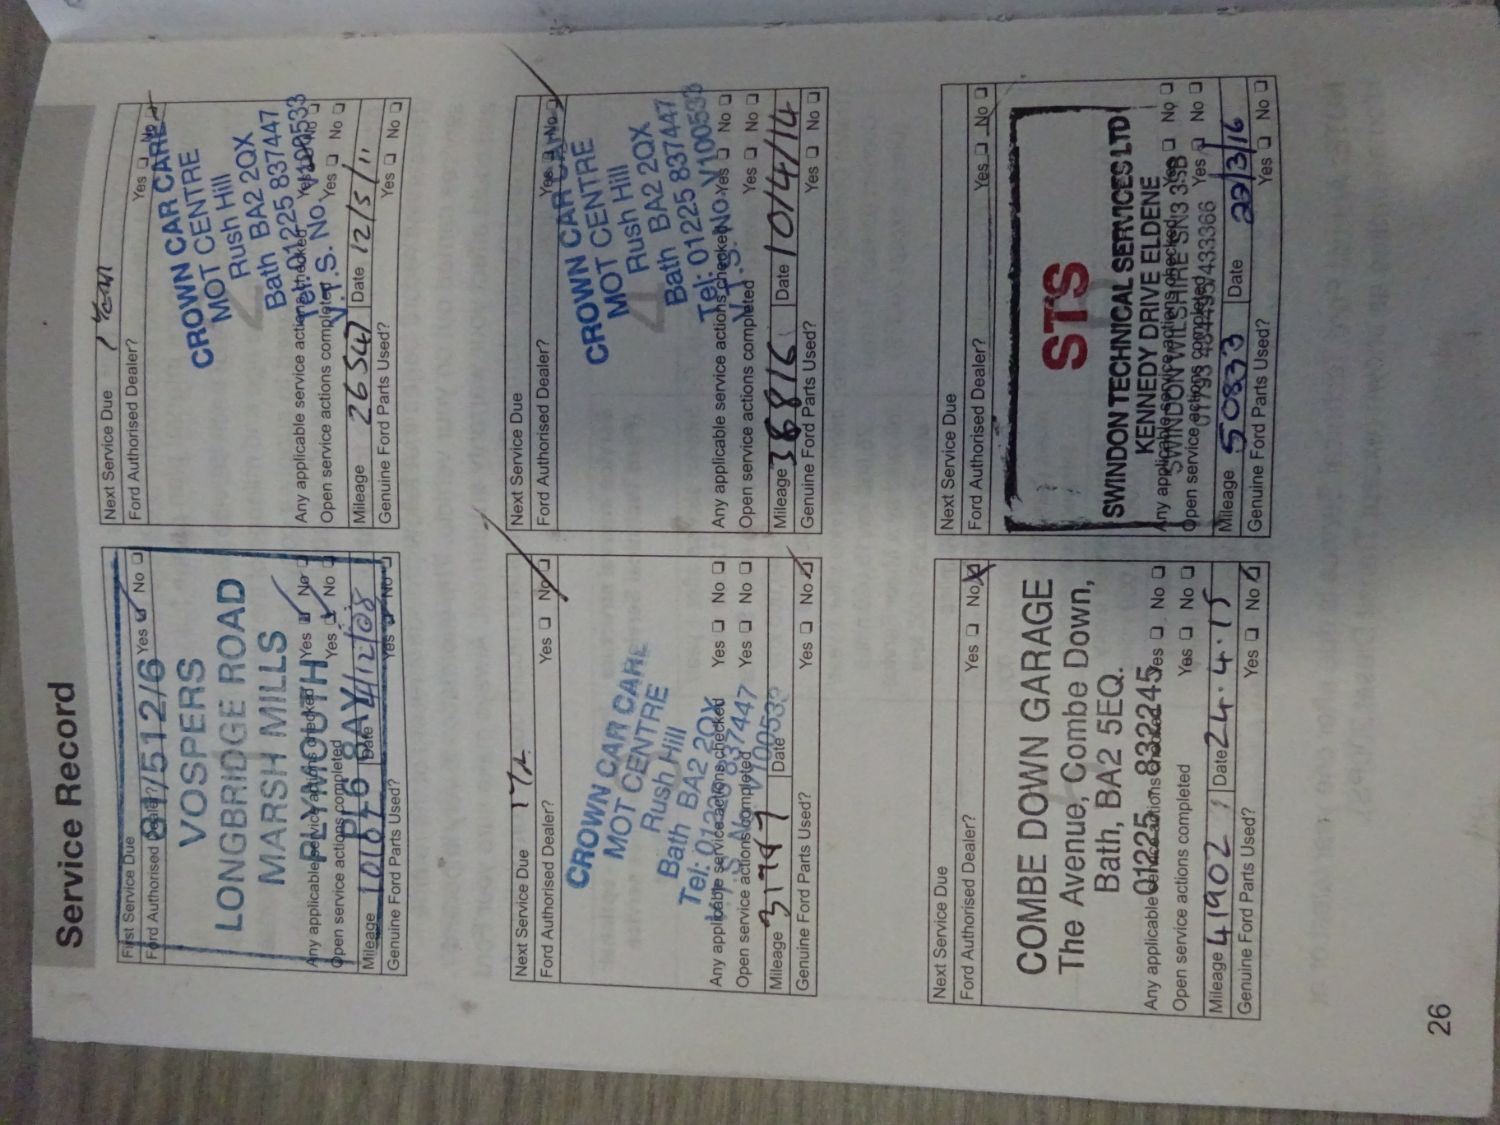 Service Record
First Service Due
Ford Authorised Dealer? Yes No
81/512/6
VOSPERS
LONGBRIDGE ROAD
MARSH MILLS
PLYMOUTH
Any applicable service actions checked Yes No
Open service actions completed Yes No
Mileage 10101 Date 4/12/08
Genuine Ford Parts Used? Yes No
Next Service Due 1 Year
Ford Authorised Dealer? Yes No
CROWN CAR CARE
MOT CENTRE
Rush Hill
Bath BA2 2QX
Tel: 01225 837447
V.T.S. No. V100533
Any applicable service actions checked Yes No
Open service actions completed Yes No
Mileage 26547 Date 12/5/11
Genuine Ford Parts Used? Yes No
Next Service Due
Ford Authorised Dealer? Yes No
CROWN CAR CARE
MOT CENTRE
Rush Hill
Bath BA2 2QX
Tel: 01225 837447
V.T.S. No. V100533
Any applicable service actions checked Yes No
Open service actions completed Yes No
Mileage Date
Genuine Ford Parts Used? Yes No
Next Service Due
Ford Authorised Dealer? Yes No
CROWN CAR CARE
MOT CENTRE
Rush Hill
Bath BA2 2QX
Tel: 01225 837447
V.T.S. No. V100533
Any applicable service actions checked Yes No
Open service actions completed Yes No
Mileage 36816 Date 10/4/14
Genuine Ford Parts Used? Yes No
Next Service Due
Ford Authorised Dealer? Yes No
COMBE DOWN GARAGE
The Avenue, Combe Down,
Bath, BA2 5EQ.
01225 832245
Any applicable service actions checked Yes No
Open service actions completed Yes No
Mileage 41902 Date 24.4.15
Genuine Ford Parts Used? Yes No
Next Service Due
Ford Authorised Dealer? Yes No
STS
SWINDON TECHNICAL SERVICES LTD
KENNEDY DRIVE ELDENE
SWINDON WILSHIRE SN3 3SB
Any applicable service actions checked Yes No
Open service actions completed Yes No
Mileage 50833 Date 22/3/16
Genuine Ford Parts Used? Yes No
26